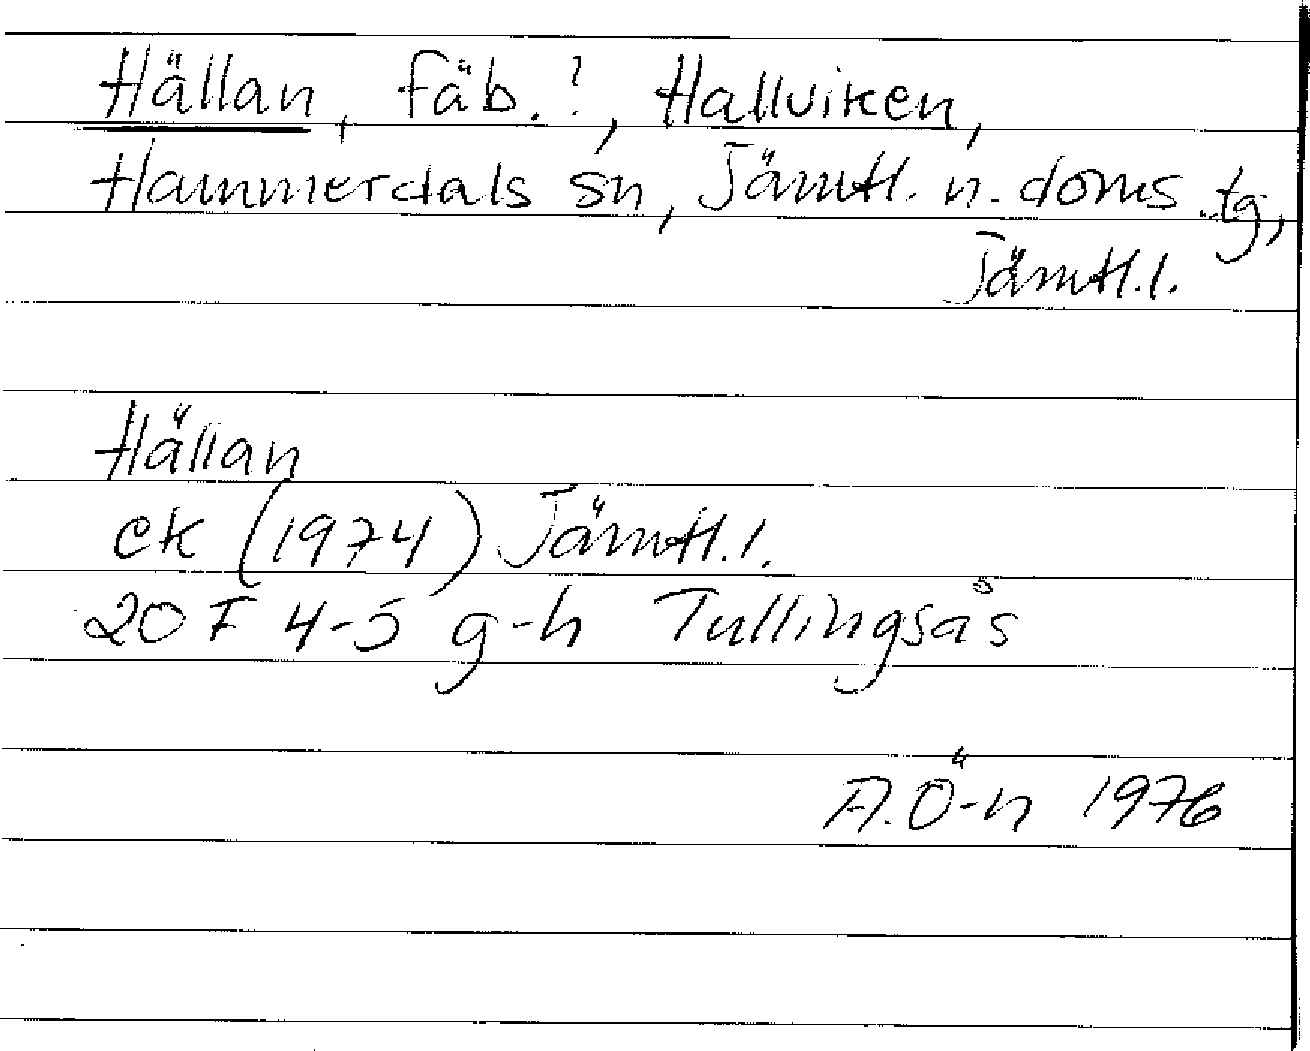 Hällan, fäb. !, Hallviken,
Hammerdals sn, Jämtl. n. doms.tg,
Jämtl.l.
Hällan
ek (1974) Jämtl.l.
20 F 4-5 g-h Tullingsås
A.Ö-n 1976